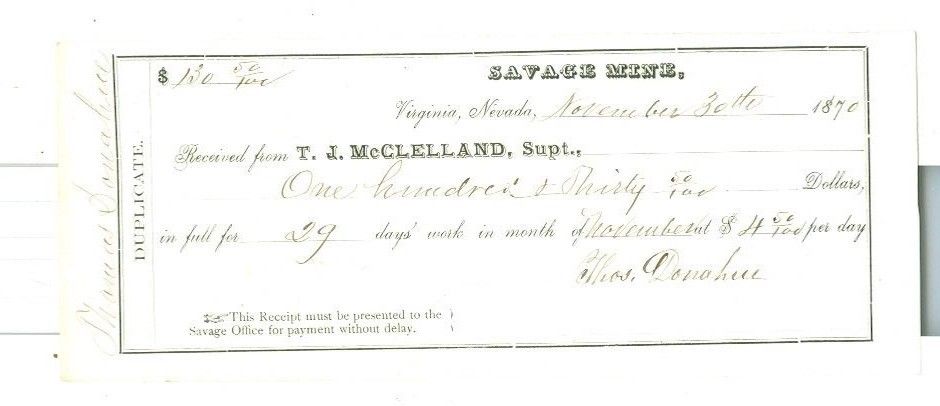 $ 130 50/100
SAVAGE MINE,
Virginia, Nevada, November 30th 1870
Received from T. J. McCLELLAND, Supt.,
One hundred & Thirty 50/100 Dollars,
in full for 29 days' work in month of November at $ 4 50/100 per day
Thos. Donahue
This Receipt must be presented to the
Savage Office for payment without delay.
DUPLICATE.
Thomas Donahue